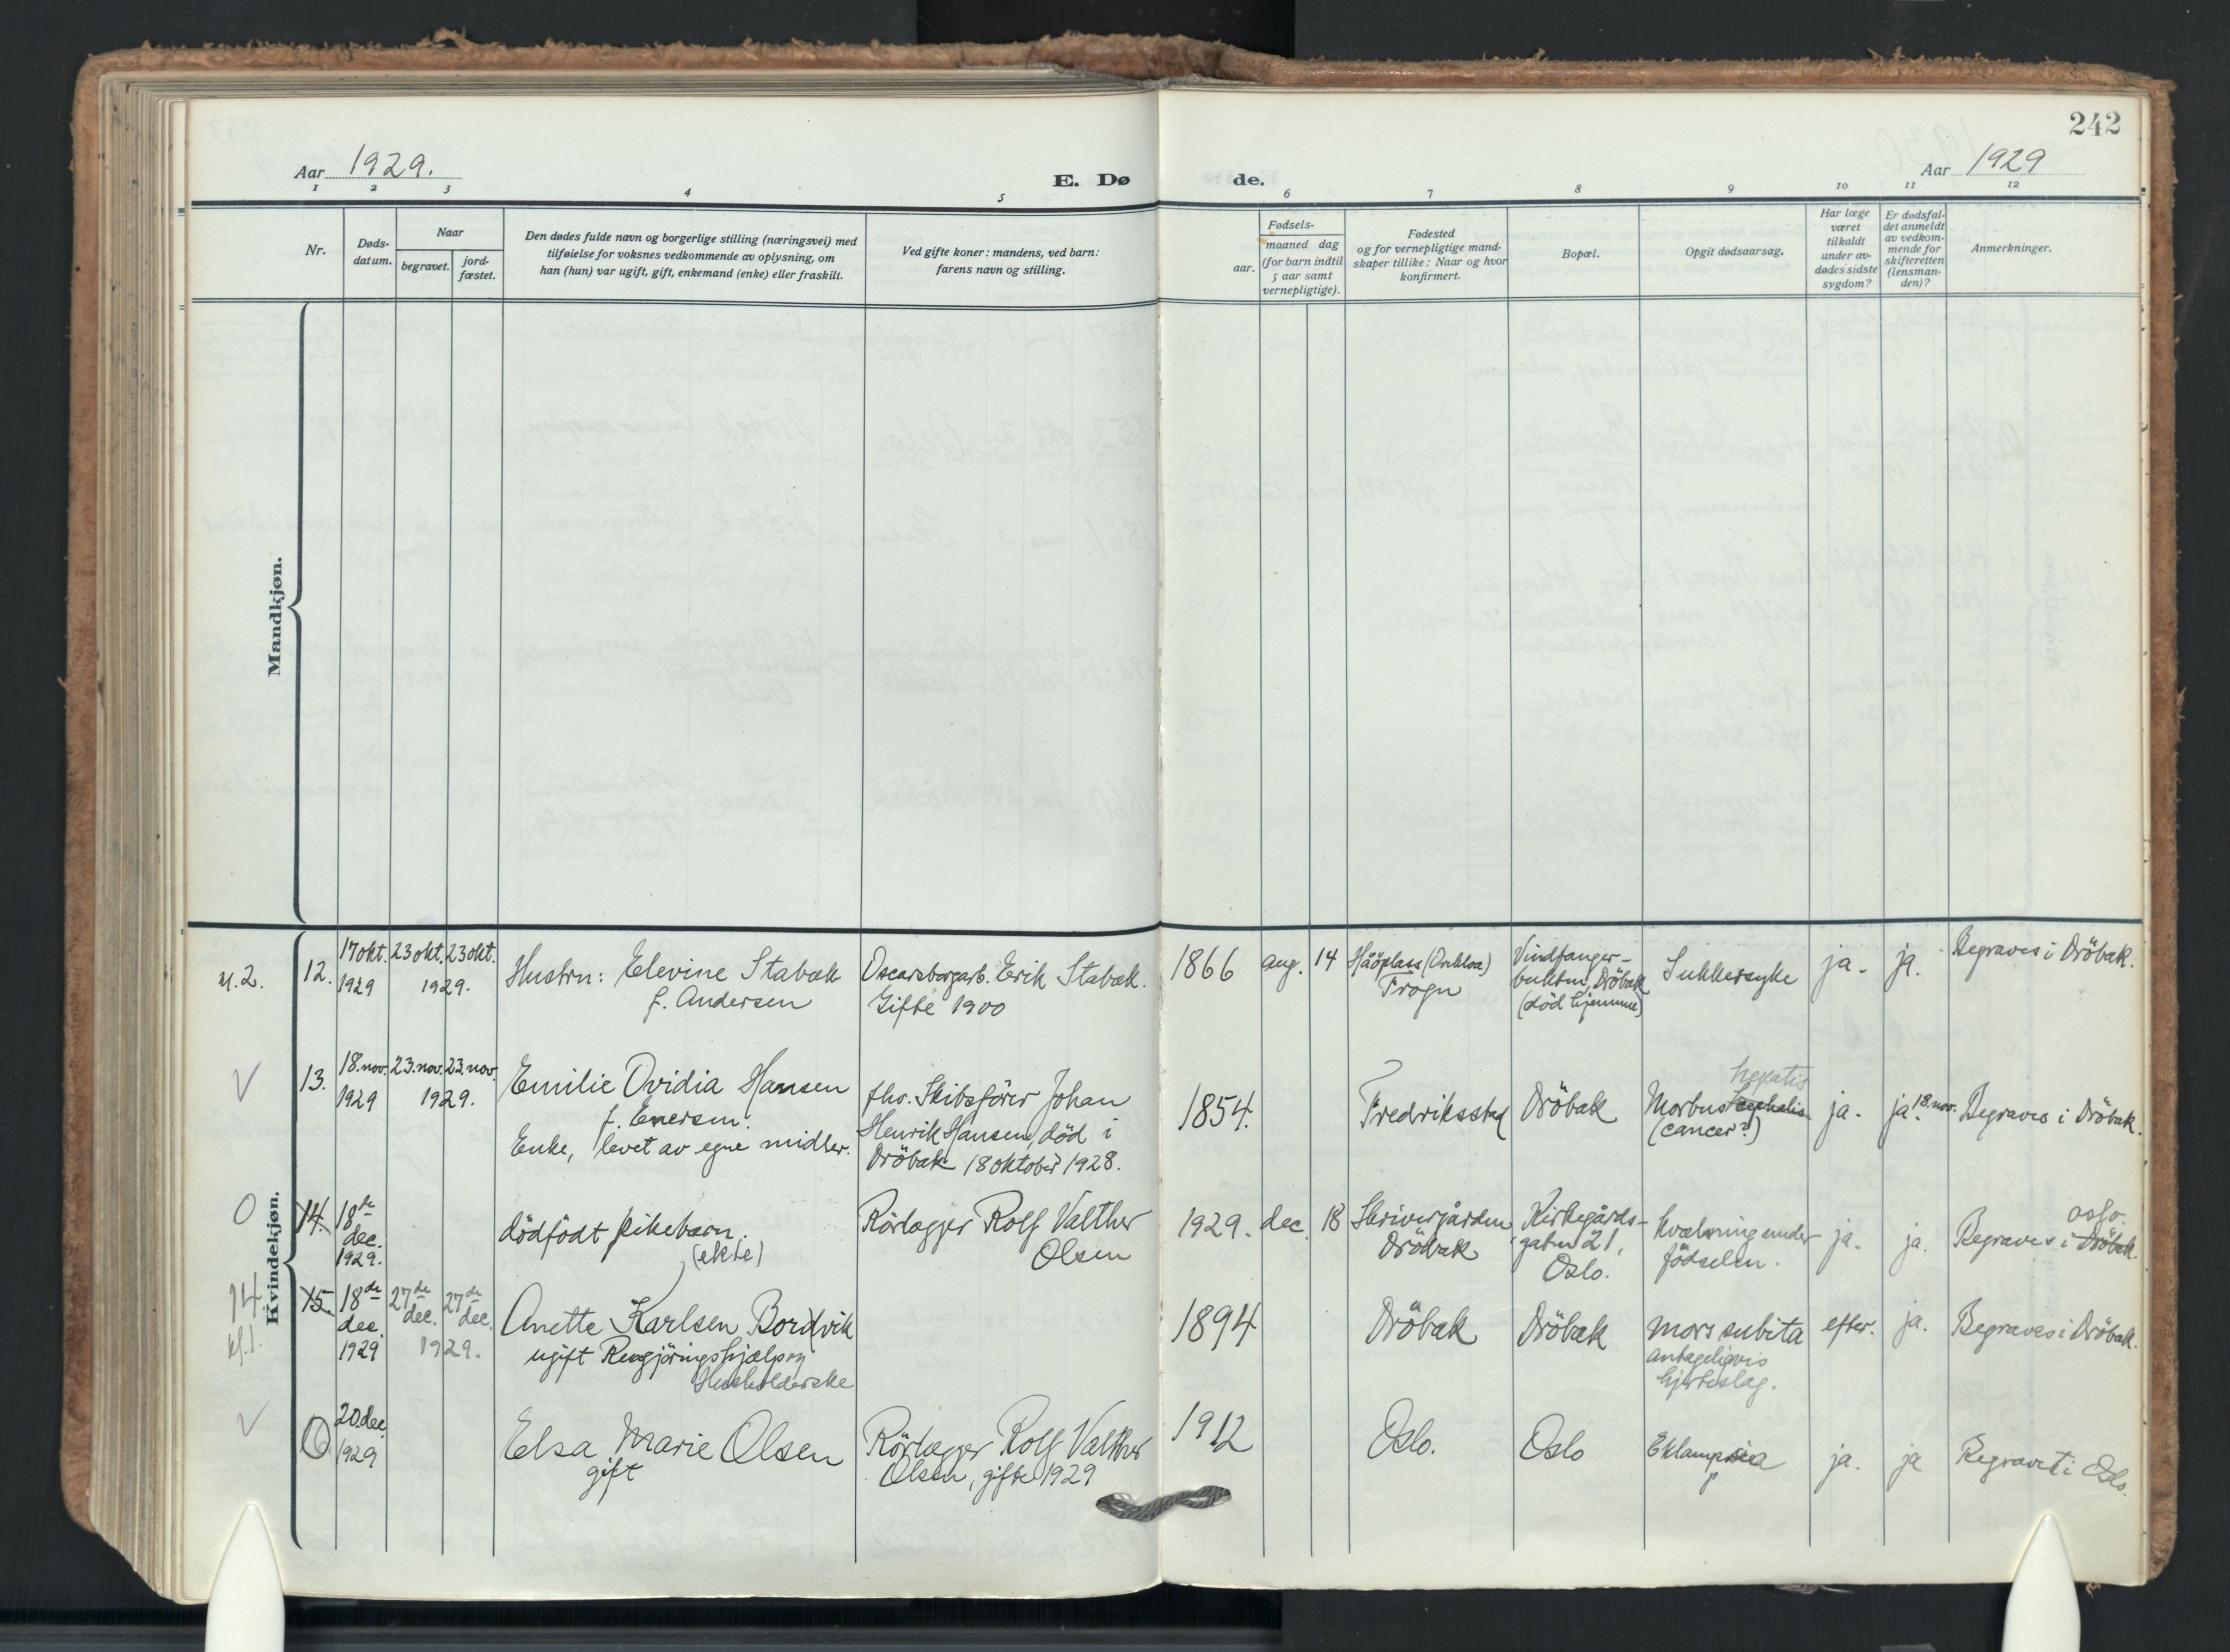 242
Aar 1929.
E. Dø
de.
Aar 1929
1 2 3 4 5 6 7 8 9 10 11 12
Nr.
Døds-
datum.
Naar
begravet.
jord-
fæstet.
Den dødes fulde navn og borgerlige stilling (næringsvei) med
tilføielse for voksnes vedkommende av oplysning, om
han (hun) var ugift, gift, enkemand (enke) eller fraskilt.
Ved gifte koner: mandens, ved barn:
farens navn og stilling.
Fødsels-
aar.
maaned dag
(for barn indtil
5 aar samt
vernepligtige).
Fødested
og for vernepligtige mand-
skaper tillike: Naar og hvor
konfirmert.
Bopæl.
Opgit dødsaarsag.
Har læge
været
tilkaldt
under av-
dødes sidste
sygdom?
Er dødsfal-
det anmeldt
av vedkom-
mende for
skifteretten
(lensman-
den)?
Anmerkninger.
Mandkjøn.
Kvindekjøn.
12.
17 okt.
1929
23 okt. 23 okt.
1929.
Hustru: Elevine Stabæk
f. Andersen
Oscarsborgarb. Erik Stabæk.
Gifte 1900
1866 aug. 14
Håöplass
Frogn
Vindfanger-
bukten, Dröbak
(död hjemme)
Sukkersyke
ja.
ja.
Begraves i Dröbak.
13.
18. nov.
1929
23. nov. 23. nov.
1929.
Emilie Ovidia Hansen
f. Enersen.
Enke, levet av egne midler.
fhv. Skibsförer Johan
Henrik Hansen, död i
Dröbak 18 oktober 1928.
1854.
Fredriksstad
Dröbak
hepatis
Morbus cephalis
(cancer?)
ja.
ja. 18. nov.
Begraves i Dröbak.
14.
18de
dec.
1929.
dödfödt pikebarn.
(ekte)
Rörlægger Rolf Valther
Olsen
1929. dec. 18
Skrivergården
Dröbak
Kirkegårds-
gaten 21,
Oslo.
kvælning under
födselen.
ja.
ja.
Oslo.
Begraves i Dröbak.
14
kl. 1.
15.
18de
dec.
1929
27de
dec.
27de
dec.
1929.
Anette Karlsen Bordvik
ugift Rengjöringshjælp og
Husholderske
1894
Dröbak
Dröbak
Mors subita
antageligvis
hjerteslag.
efter.
ja.
Begraves i Dröbak.
20. dec.
1929
Elsa Marie Olsen
gift
Rörlægger Rolf Valther
Olsen, gifte 1929
1912
Oslo.
Oslo
Eklampsia
ja.
ja
Begravet i Oslo.